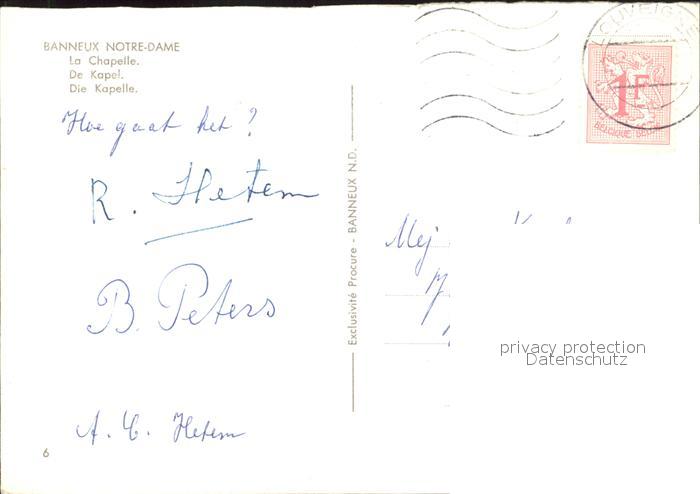 BANNEUX NOTRE-DAME
La Chapelle.
De Kapel.
Die Kapelle.
Hoe gaat het ?
R. Hetem
B. Peters
A. C. Hetem
6
Exclusivité Procure - BANNEUX N.D.
LOUVEIGNE
1F
BELGIQUE-BELGIE
Mej
privacy protection
Datenschutz